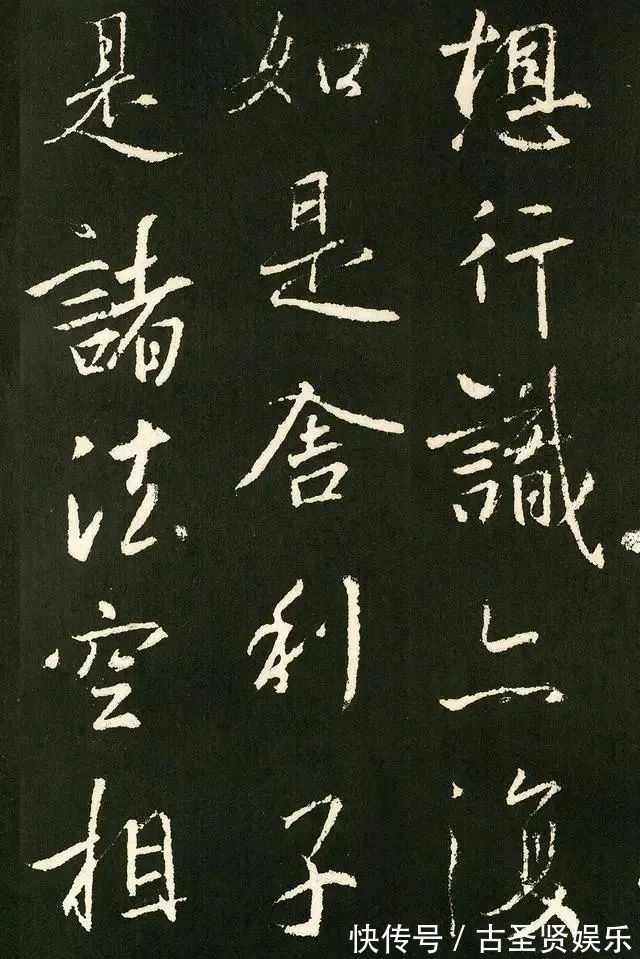 想行識亦復
如是舍利子
是諸法空相
快传号/古圣贤娱乐